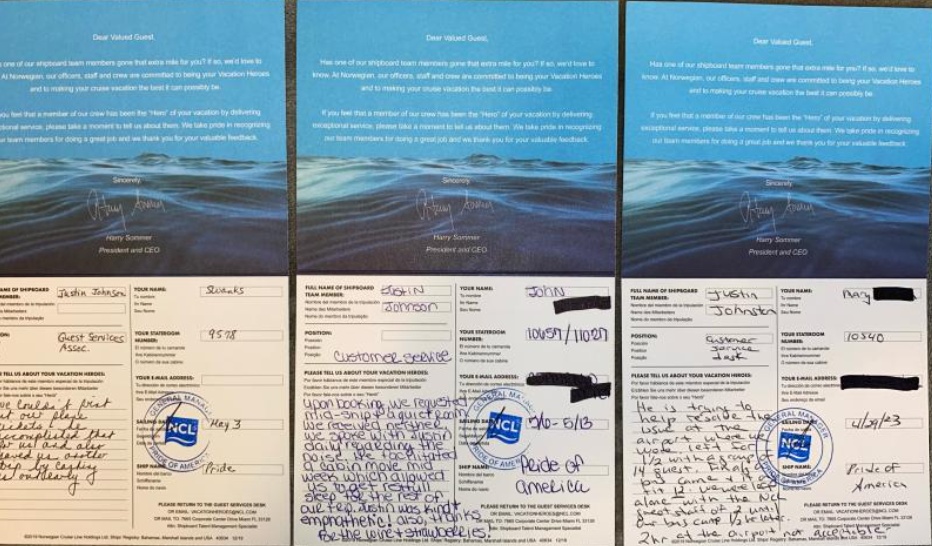 Dear Valued Guest,
s one of our shipboard team members gone that extra mile for you? If so, we'd love to
At Norwegian, our officers, staff and crew are committed to being your Vacation Heroes
and to making your cruise vacation the best it can possibly be.
you feel that a member of our crew has been the "Hero" of your vacation by delivering
ptional service, please take a moment to tell us about them. We take pride in recognizing
team members for doing a great job and we thank you for your valuable feedback.
Sincerely,
Harry Sommer
President and CEO
AME OF SHIPBOARD
MEMBER:
Justin Johnson
YOUR NAME:
Swanks
ON:
Guest Services
Assoc.
YOUR STATEROOM
NUMBER:
9578
E TELL US ABOUT YOUR VACATION HEROES:
YOUR E-MAIL ADDRESS:
we couldn't print
out our plane
tickets & he
accomplished that
for us and also
saved us another
trip by cashing
us out early
SAILING DATE
May 3
GENERAL MANAGER
NCL
PRIDE OF AMERICA
SHIP NAME:
Pride
PLEASE RETURN TO THE GUEST SERVICES DESK
OR EMAIL: VACATIONHEROES@NCL.COM
OR MAIL TO: 7665 Corporate Center Drive Miami FL 33126
Attn: Shipboard Talent Management Specialist
Dear Valued Guest,
Has one of our shipboard team members gone that extra mile for you? If so, we'd love to
know. At Norwegian, our officers, staff and crew are committed to being your Vacation Heroes
and to making your cruise vacation the best it can possibly be.
If you feel that a member of our crew has been the "Hero" of your vacation by delivering
exceptional service, please take a moment to tell us about them. We take pride in recognizing
our team members for doing a great job and we thank you for your valuable feedback.
Sincerely,
Harry Sommer
President and CEO
FULL NAME OF SHIPBOARD
TEAM MEMBER:
Justin
Johnson
YOUR NAME:
John
POSITION:
Customer Service
YOUR STATEROOM
NUMBER:
10657/11027
PLEASE TELL US ABOUT YOUR VACATION HEROES:
YOUR E-MAIL ADDRESS:
Upon booking we requested
mid-ship & a quiet room
we received neither.
we spoke with Justin
daily regarding the
noise. He facilitated
a cabin move mid
week which allowed
us to get restful
sleep for the rest of
our trip. Justin was kind &
emphathetic! also, thanks
for the wine + strawberries!
SAILING DATE
5/10-5/13
GENERAL MANAGER
NCL
PRIDE OF AMERICA
SHIP NAME:
Pride of
America
PLEASE RETURN TO THE GUEST SERVICES DESK
OR EMAIL: VACATIONHEROES@NCL.COM
OR MAIL TO: 7665 Corporate Center Drive Miami FL 33126
Attn: Shipboard Talent Management Specialist
Dear Valued Guest,
Has one of our shipboard team members gone that extra mile for you? If so, we'd love to
know. At Norwegian, our officers, staff and crew are committed to being your Vacation Heroes
and to making your cruise vacation the best it can possibly be.
If you feel that a member of our crew has been the "Hero" of your vacation by delivering
exceptional service, please take a moment to tell us about them. We take pride in recognizing
our team members for doing a great job and we thank you for your valuable feedback.
Sincerely,
Harry Sommer
President and CEO
FULL NAME OF SHIPBOARD
TEAM MEMBER:
Justin
Johnston
YOUR NAME:
Mary
POSITION:
Customer
Service
Desk
YOUR STATEROOM
NUMBER:
10540
PLEASE TELL US ABOUT YOUR VACATION HEROES:
YOUR E-MAIL ADDRESS:
He is trying to
help resolve the
issue at the
airport where we
were left for
1/2 with a group of
14 guest. Finally a
bus came & it only
fit 12. we were left
alone with the NCL
guest staff of 2 until
our bus came 1/2 hr later.
2 hr at the airport not acceptible
SAILING DATE
4/29/23
GENERAL MANAGER
NCL
PRIDE OF AMERICA
SHIP NAME:
Pride of
America
PLEASE RETURN TO THE GUEST SERVICES DESK
OR EMAIL: VACATIONHEROES@NCL.COM
OR MAIL TO: 7665 Corporate Center Drive Miami FL 33126
Attn: Shipboard Talent Management Specialist